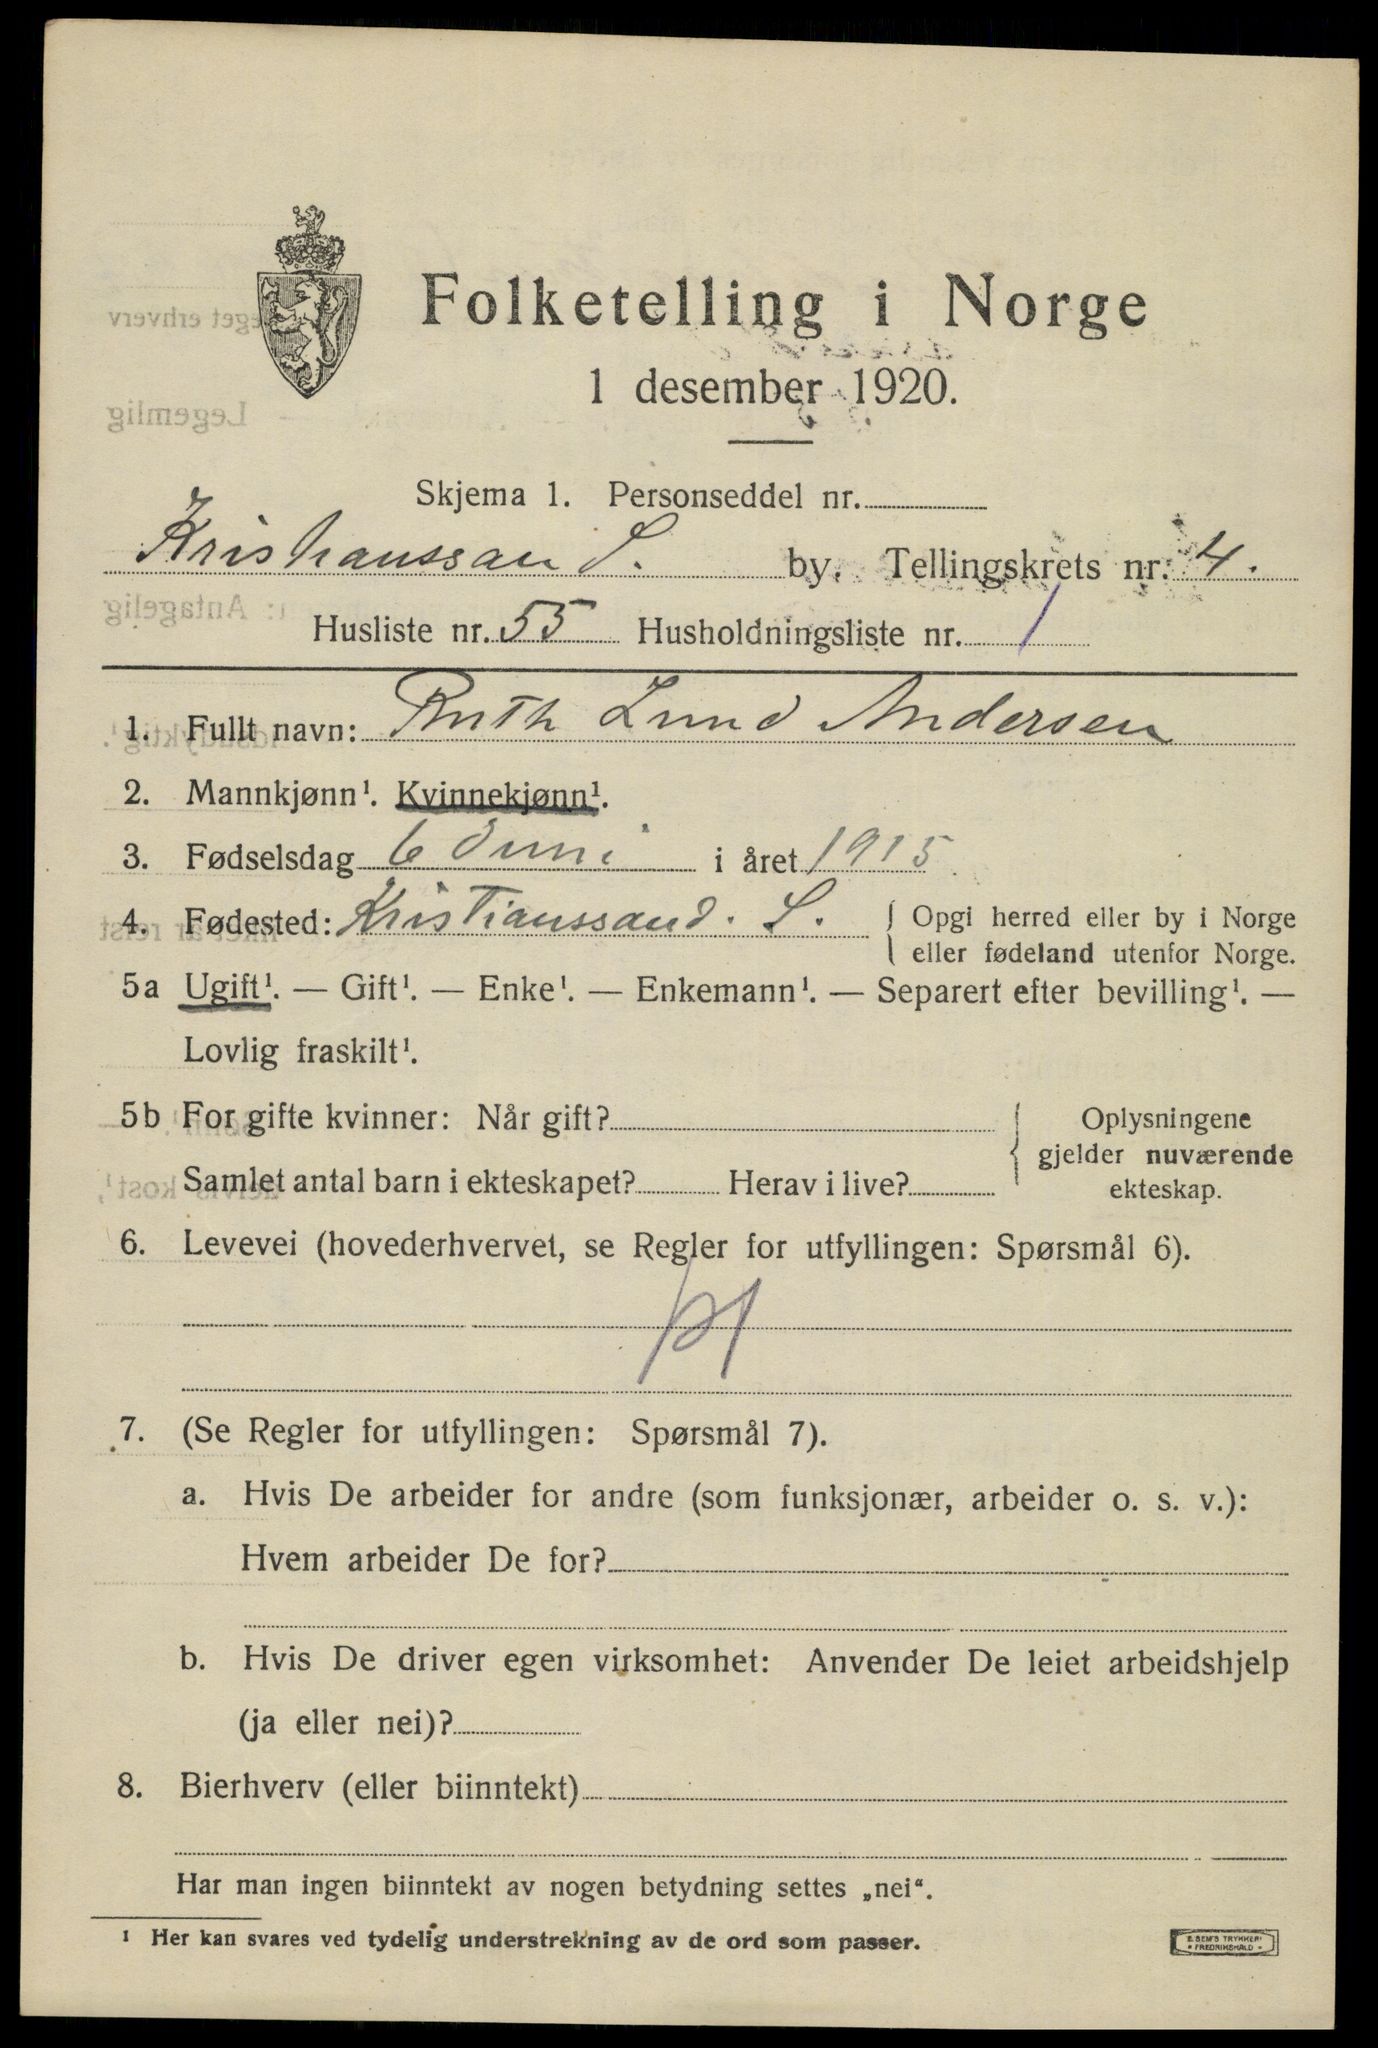 Folketelling i Norge
1 desember 1920.
Skjema 1. Personseddel nr.
Kristianssand S. by. Tellingskrets nr. 4.
Husliste nr. 55 Husholdningsliste nr. 1
1. Fullt navn: Ruth Lund Andersen
2. Mannkjønn¹. Kvinnekjønn¹.
3. Fødselsdag 6 Juni i året 1915
4. Fødested: Kristianssand. S. { Opgi herred eller by i Norge
eller fødeland utenfor Norge.
5a Ugift¹. — Gift¹. — Enke¹. — Enkemann¹. — Separert efter bevilling¹. —
Lovlig fraskilt¹.
5b For gifte kvinner: Når gift? { Oplysningene
gjelder nuværende
Samlet antal barn i ekteskapet? Herav i live? ekteskap.
6. Levevei (hovederhvervet, se Regler for utfyllingen: Spørsmål 6).
7. (Se Regler for utfyllingen: Spørsmål 7).
a. Hvis De arbeider for andre (som funksjonær, arbeider o. s. v.):
Hvem arbeider De for?
b. Hvis De driver egen virksomhet: Anvender De leiet arbeidshjelp
(ja eller nei)?
8. Bierhverv (eller biinntekt)
Har man ingen biinntekt av nogen betydning settes „nei“.
¹ Her kan svares ved tydelig understrekning av de ord som passer.
E. SEM'S TRYKKERI
FREDRIKSHALD